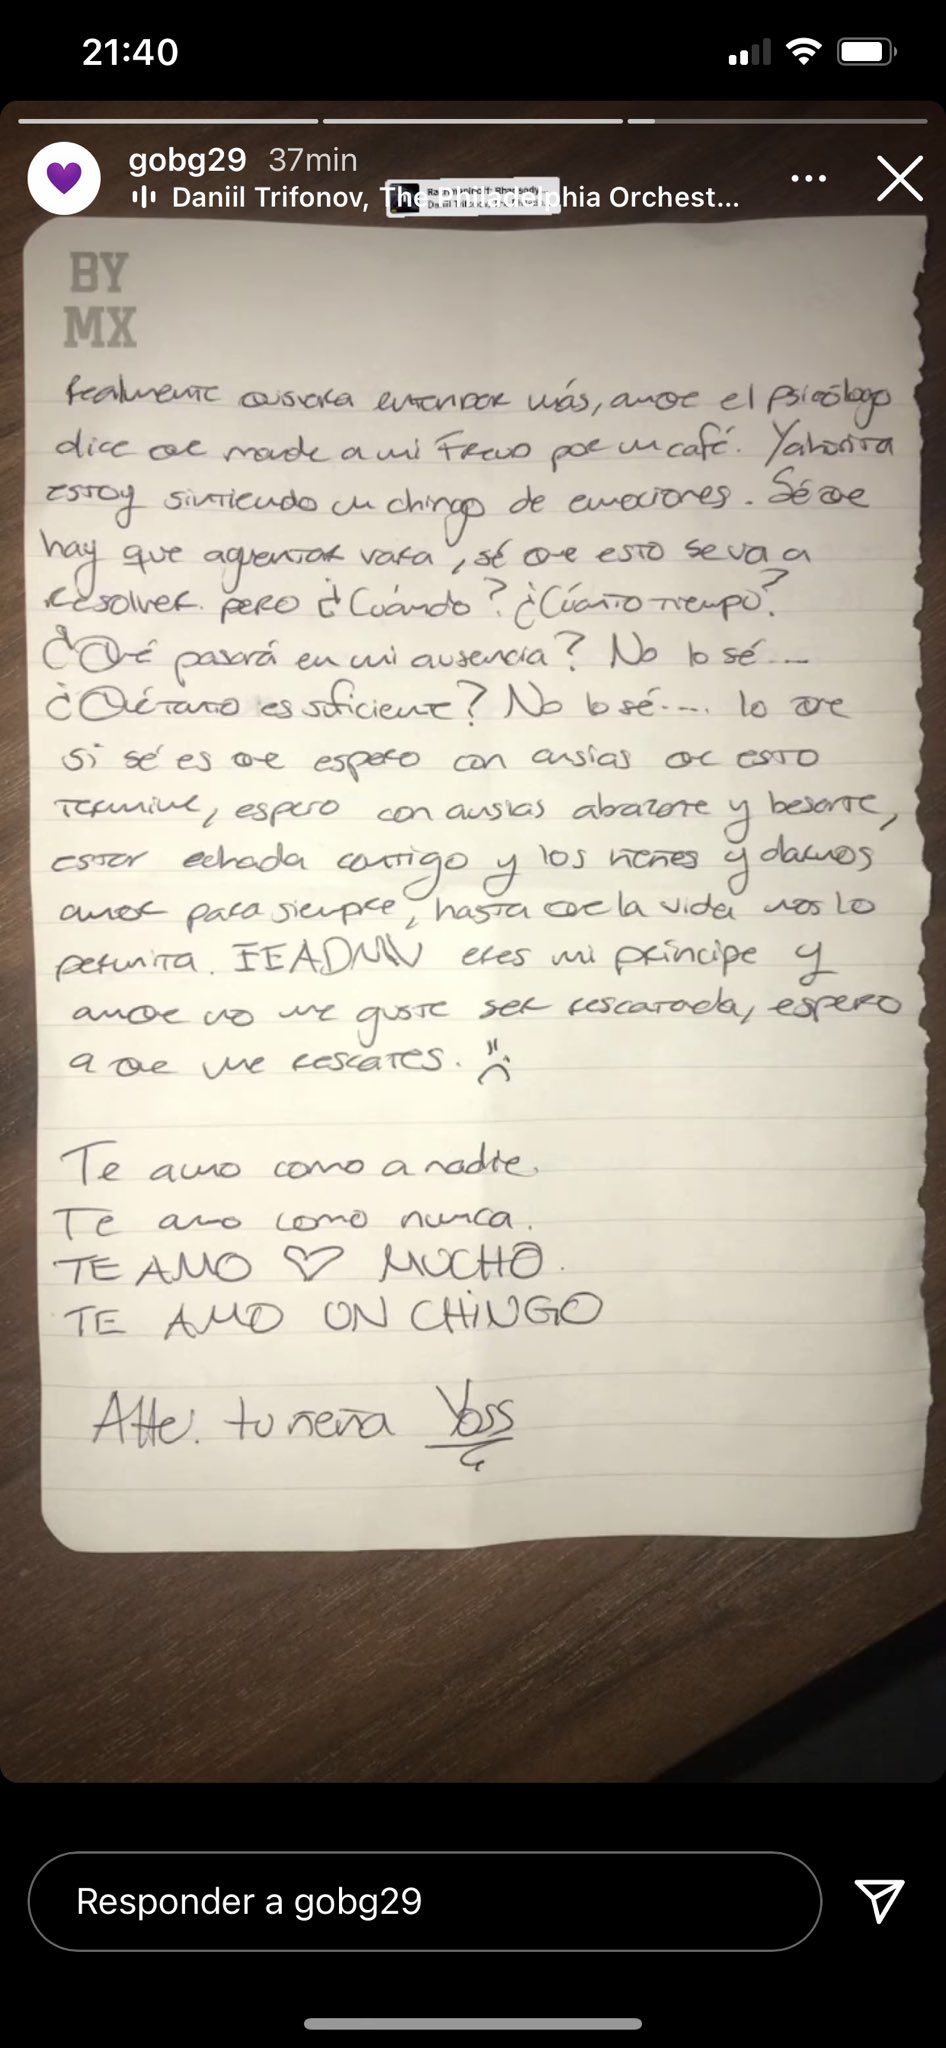 21:40
gobg29 37min
Daniil Trifonov, The Philadelphia Orchest...
BY
MX
Realmente quisiera entender más, aunque el psicólogo
dice que mande a mi Freud por un café. Y ahorita
estoy sintiendo un chingo de emociones. Sé que
hay que aguantar vara, sé que esto se va a
resolver pero ¿Cuándo? ¿Cuánto tiempo?
¿Qué pasará en mi ausencia? No lo sé....
¿Qué tanto es suficiente? No lo sé.... lo que
si sé es que espero con ansias que esto
termine, espero con ansias abrazarte y besarte,
estar echada contigo y los ñeñes y darnos
amor para siempre, hasta que la vida nos lo
permita. eres mi príncipe y
aunque no me guste ser rescatada, espero
a que me rescates.
Te amo como a nadie.
Te amo como nunca.
TE AMO MUCHO.
TE AMO UN CHINGO
Atte. tu ñeña Yoss
Responder a gobg29